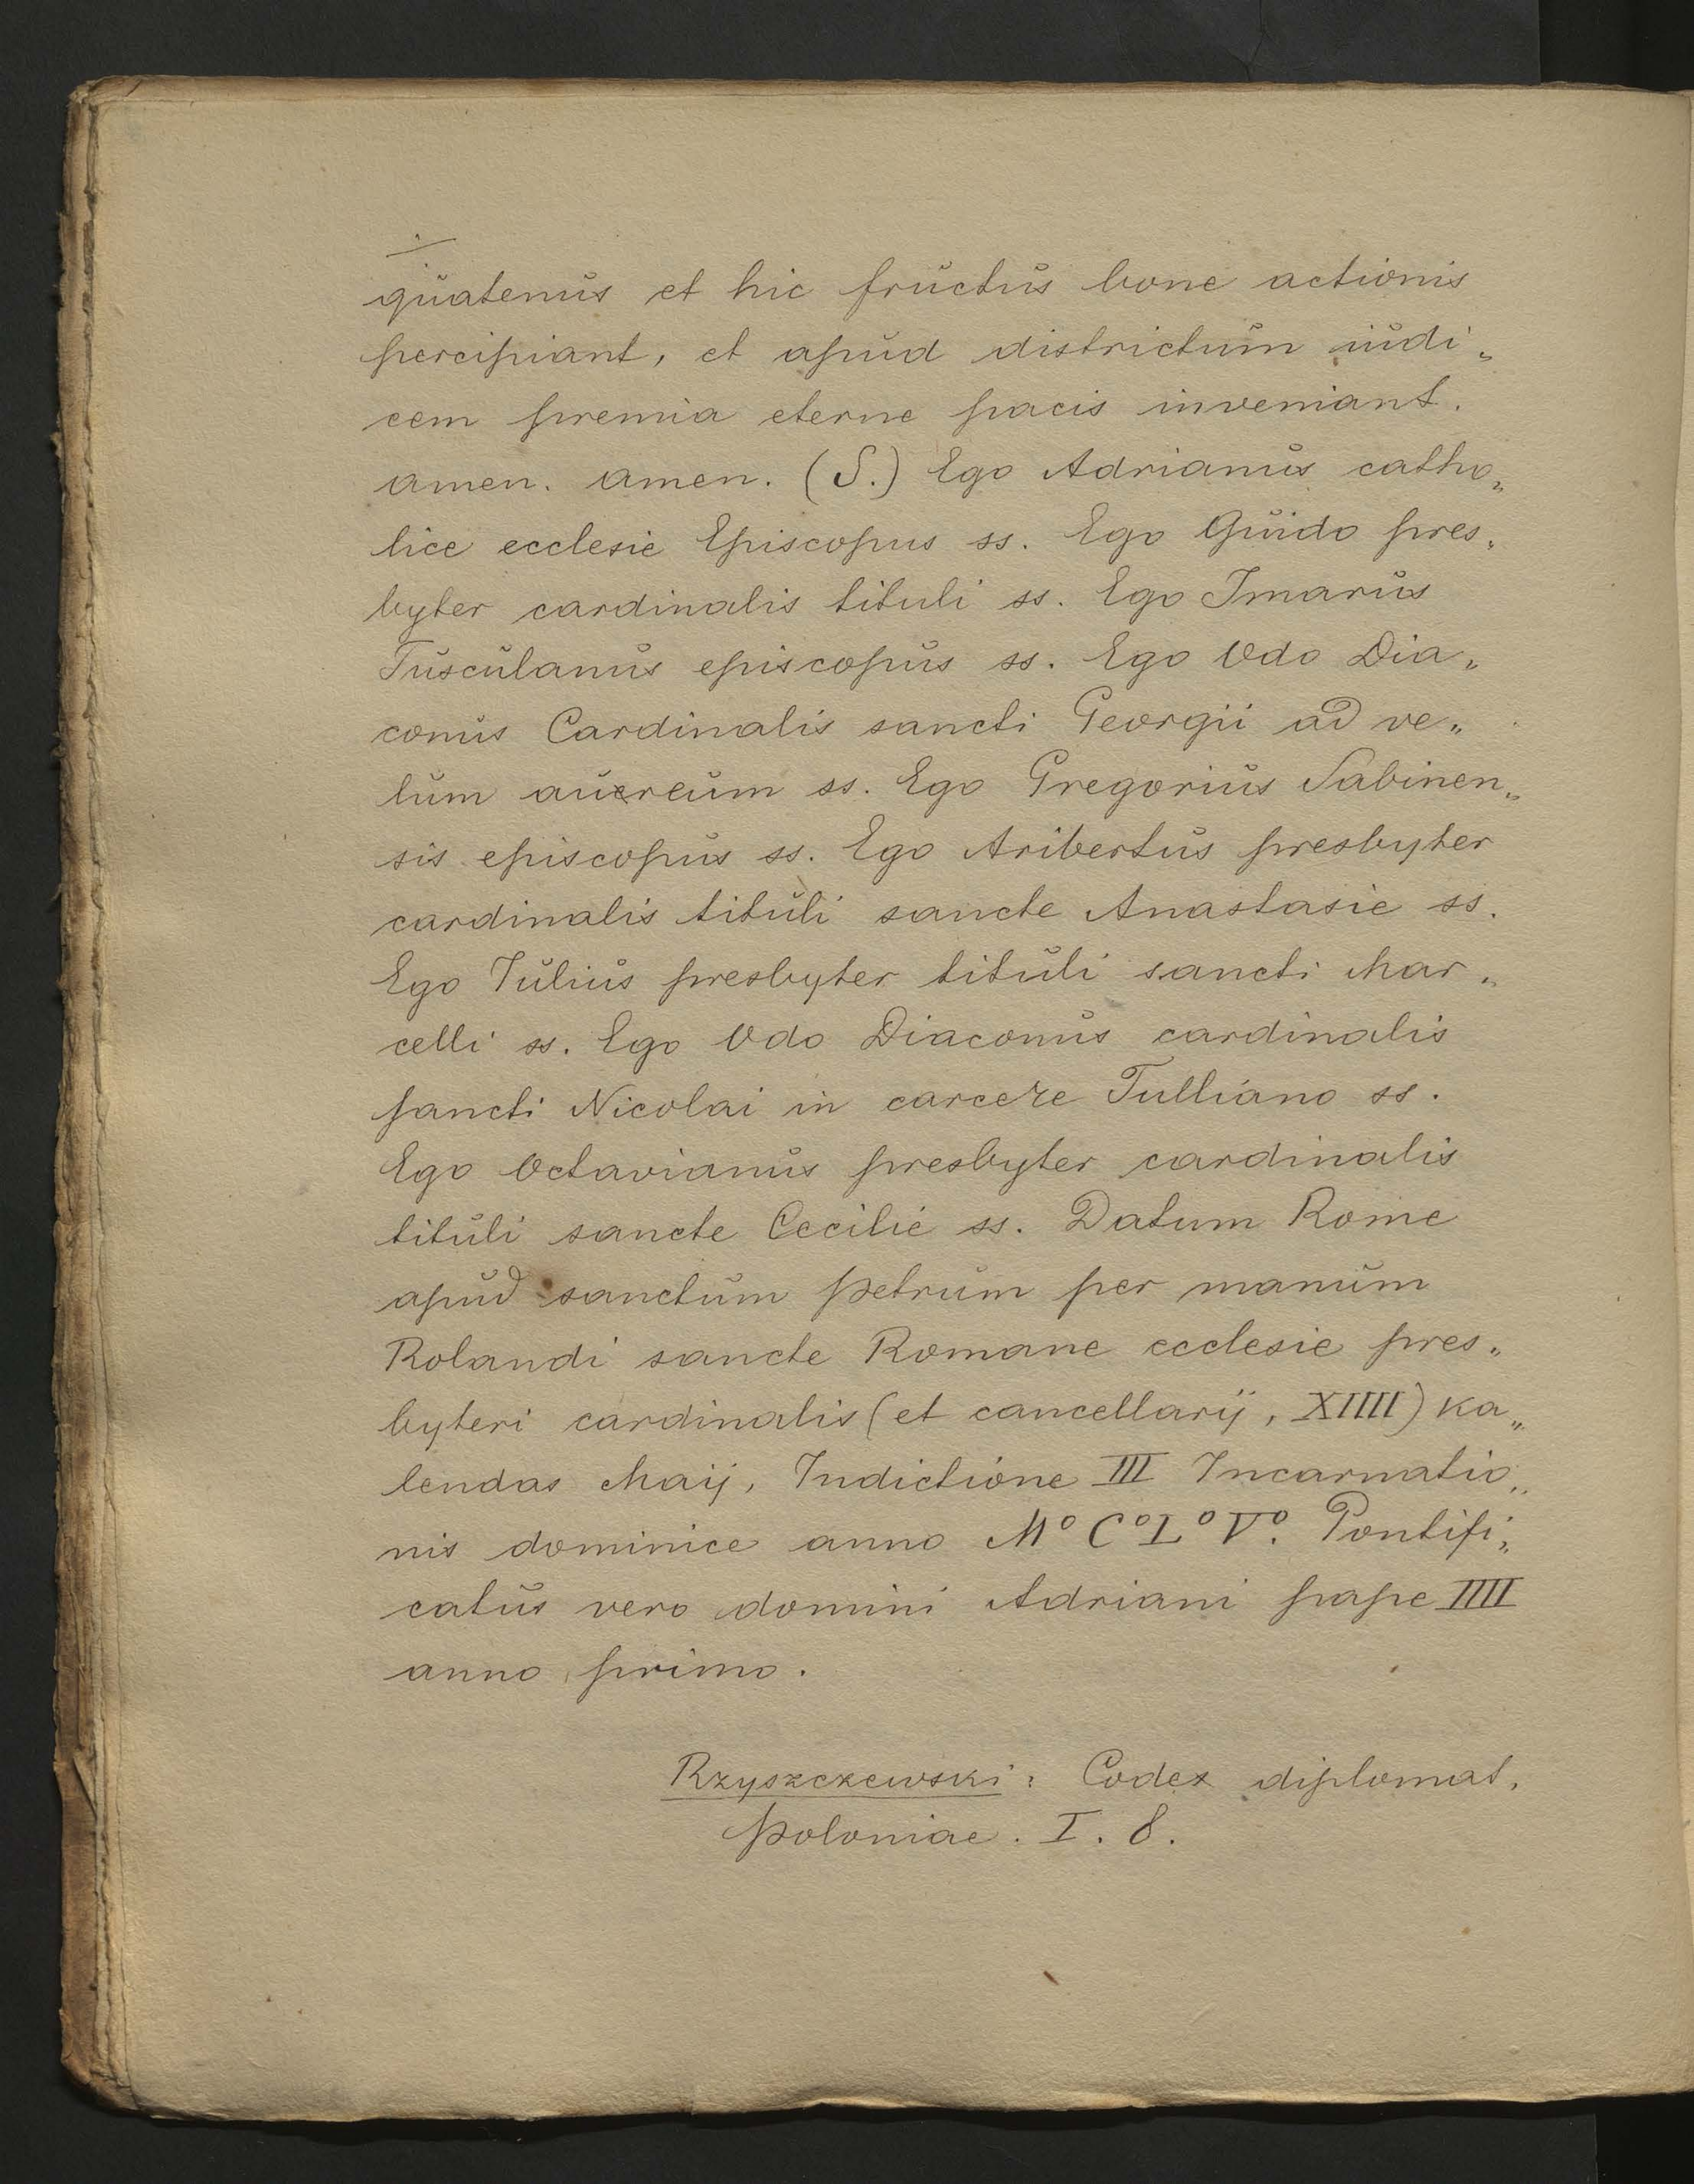 quatenus et hic fructus bone actionis
percipiant, et apud districtum iudi„
cem premia eterne pacis inveniant.
amen. amen. (S.) Ego Adrianus catho„
lice ecclesie Episcopus ss. Ego Guido pres„
byter cardinalis tituli ss. Ego Imarus
Tusculanus episcopus ss. Ego Odo Dia„
conus Cardinalis sancti Georgii ad ve„
lum auereum ss. Ego Gregorius Sabinen„
sis episcopus ss. Ego Aribertus presbyter
cardinalis tituli sancte Anastasie ss.
Ego Julius presbyter tituli sancti Mar„
celli ss. Ego Odo Diaconus cardinalis
sancti Nicolai in carcere Tulliano ss.
Ego Octavianus presbyter cardinalis
tituli sancte Cecilie ss. Datum Rome
apud sanctum Petrum per manum
Rolandi sancte Romane ecclesie pres„
byteri cardinalis (et cancellarij, XIIII) Ka„
lendas Maij, Indictione III Incarnatio„
nis dominice anno M° C° L° V°. Pontifi„
catus vero domini Adriani pape IIII
anno primo.
Rzyszczewski: Codex diplomat.
Poloniae. I. 8.